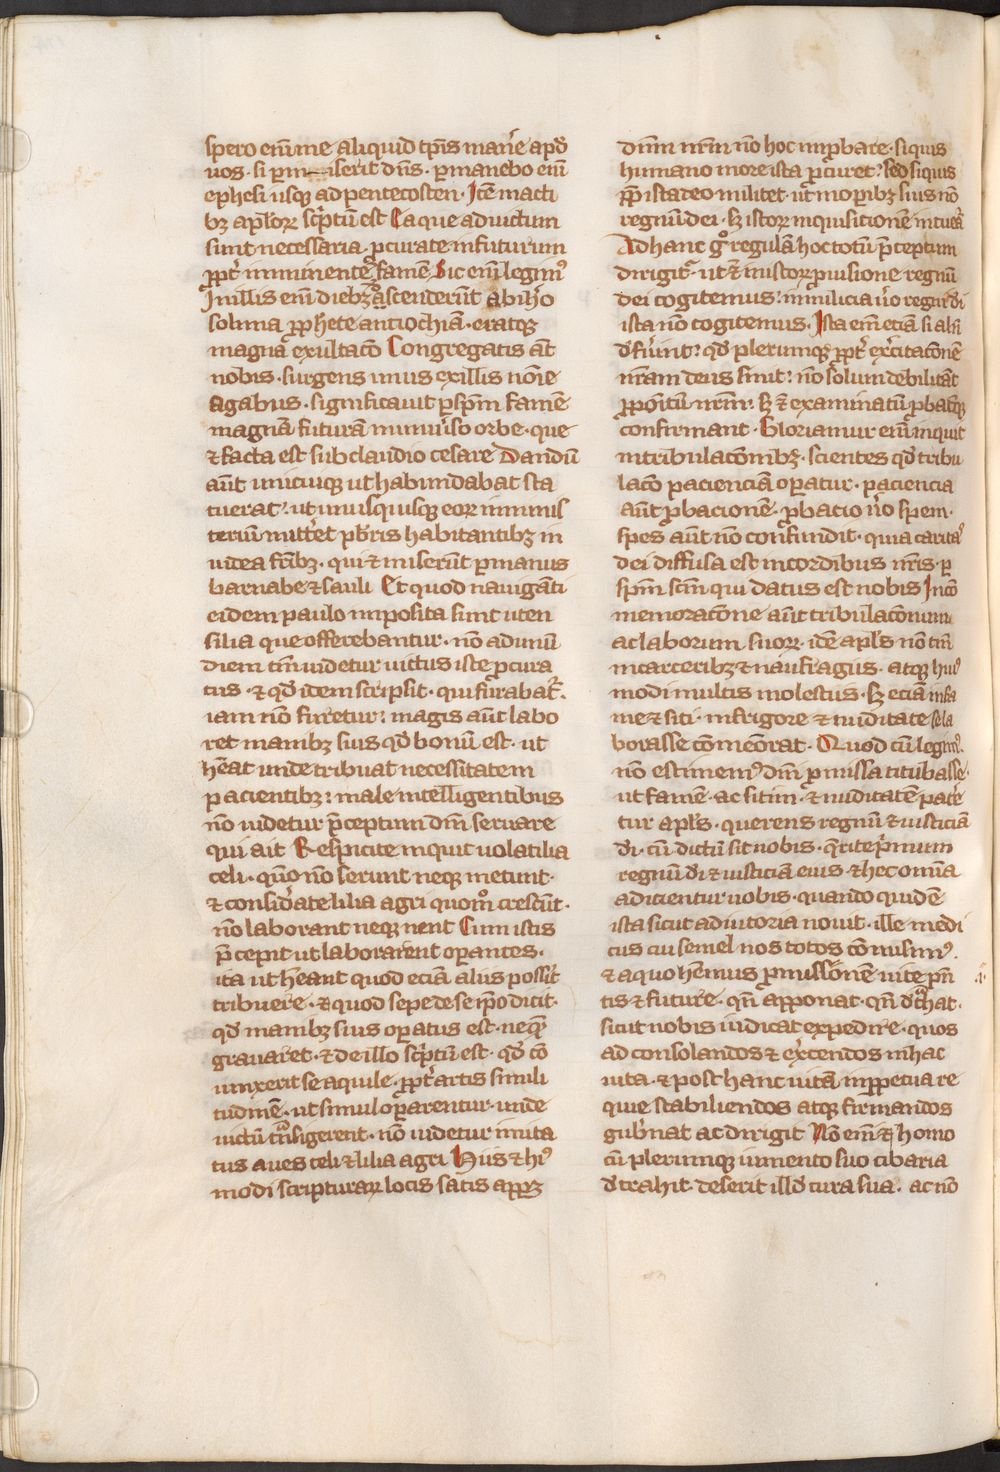 spero em̄ me aliquid tp̄ris manēe apđ
uos · si ꝑmiserit dn̄s · ꝑmanebo em̄
ephesi usqꝫ ad pentecosten · Itē in acti
bꝫ aplor̄ sc̄ptū est Ea que ad uictum
sunt necessaria ꝓcurate in futurum
ꝓpt̄ imminentē famē Sic em̄ legim᷒
In illis em̄ diebꝫ ascenderūt ab iħo
solima ꝓphete antiochiā · eratqꝫ
magna exultac̄o Congregatis aūt
nobis · surgens unus ex illis no͞ie
Agabus · significauit ꝑ sp̄m famē
magnā futurā in uniu̾so orbe · que
⁊ facta est sub claudio cesare Dandū
aūt unicuiqꝫ ut habundabat sta
tuerat · ut unusquisqꝫ eoꝝ in minis
teriū mitt̾et pb̄ris habitantibꝫ in
iudea frībꝫ · qui ⁊ miserūt ꝑ manus
barnabe ⁊ sauli Et quod nauigāti
eidem paulo imposita sunt uten
silia que offerebantur · nō ad unū
diem tm̄ uidetur uictus iste ꝓcura
tus · ⁊ qđ idem scripsit · qui furabat̾ ·
iam nō furetur : magis aūt labo
ret manibꝫ suis qđ bonū est · ut
hēat unde tribuat necessitatem
pacientibꝫ : male intelligentibus
nō uidetur p̄ceptum dn̄i seruare
qui ait Respicite inquit uolatilia
celi · qm̄o nō serunt neqꝫ metunt ·
⁊ consid̾ate lilia agri quom̊ crescūt ·
nō laborant neqꝫ nent Cum istis
p̄cepit ut laborarent oꝑantes ·
ita ut hēant quod eciā aliis poss̄it
tribuere · ⁊ quod sepe de se ip̄o dicit ·
qđ manibꝫ suis oꝑatus est · ne quē
grauaret · ⁊ de illo sc̄ptū est · qđ cō
iunxerit se aquile ꝓpt̄ artis simili
tudinē · ut simul oꝑarentur · unde
uictū t̾nsigerent · nō uidetur imita
tus aues celi ⁊ lilia agri Hiis ⁊ hi᷒
modi scripturaꝝ locis satis appꝫ
dn̄m nr̄m nō hoc imꝓbare · si quis
humano more ista ꝓcuret : sed si quis
ꝓp̄ ista deo militet · ut in oꝑibꝫ suis nō
regnū dei · sꝫ istoꝝ inquisitionē intueat̾
Ad hanc gͦ regulā hoc totū p̄ceptum
dirigit̾ · ut ⁊ in istoꝝ ꝓuisione regnū
dei cogitemus : in milicia u̾o regni di
ista nō cogitemus · Ista em̄ eciā si aliqñ
đfu̾int : qđ plerumqꝫ ꝓpt̄ ex̾citac̄onē
nr̄am deus sinit : nō solum debilitāt
ꝓpoi̾tū nr̄m · sꝫ ⁊ examinatū ꝓbatūqꝫ
confirmant · Gloriamur em̄ inquit
in tribulac̄onibꝫ · scientes qđ tribu
lac̄o pacienciā oꝑatur · paciencia
aūt ꝓbacionē · ꝓbacio u̾o spem ·
spes aūt nō confundit · quia carita᷒
dei diffusa est in cordibus nr̄is · ꝑ
sp̄m sc̄m qui datus est nobis In cō
memorac̄one aūt tribulac̄onum
ac laborum suoꝝ · idē apl̄s nō tm̄
in carceribꝫ ⁊ naufragiis · atqꝫ hui᷒
modi multis molestiis · sꝫ eciā in fa
me ⁊ siti · in frigore ⁊ nuditate se la
borasse cōmēorat · Quod cū legim᷒ ·
nō estimem᷒ dn̄i ꝓmissa titubasse ·
ut famē · ac sitim · ⁊ nuditatē pate̾
tur apl̄s · querens regnū ⁊ iusticiā
di · cū dictū sit nobis · q̄rite p̾mum
regnū di ⁊ iusticiā eius ⁊ hec omīa
adicientur uobis · quando quidē
ista sicut adiutoria nouit · ille medi
cus cui semel nos totos cōmisim᷒ ·
⁊ a quo hēmus ꝓmissionē uite pn̄
tis ⁊ future · qn̄ apponat · qn̄ đt̾hat ·
sicut nobis iudicat expedire · quos
ad consolandos ⁊ ex̾cendos in hac
uita · ⁊ post hanc uitā in ꝑpetua re
quie stabiliendos atqꝫ firmandos
gub̾nat ac dirigit Nō em̄ ⁊ homo
cū plerumqꝫ iumento suo cibaria
đtrahit · deserit illđ cura sua · ac nō